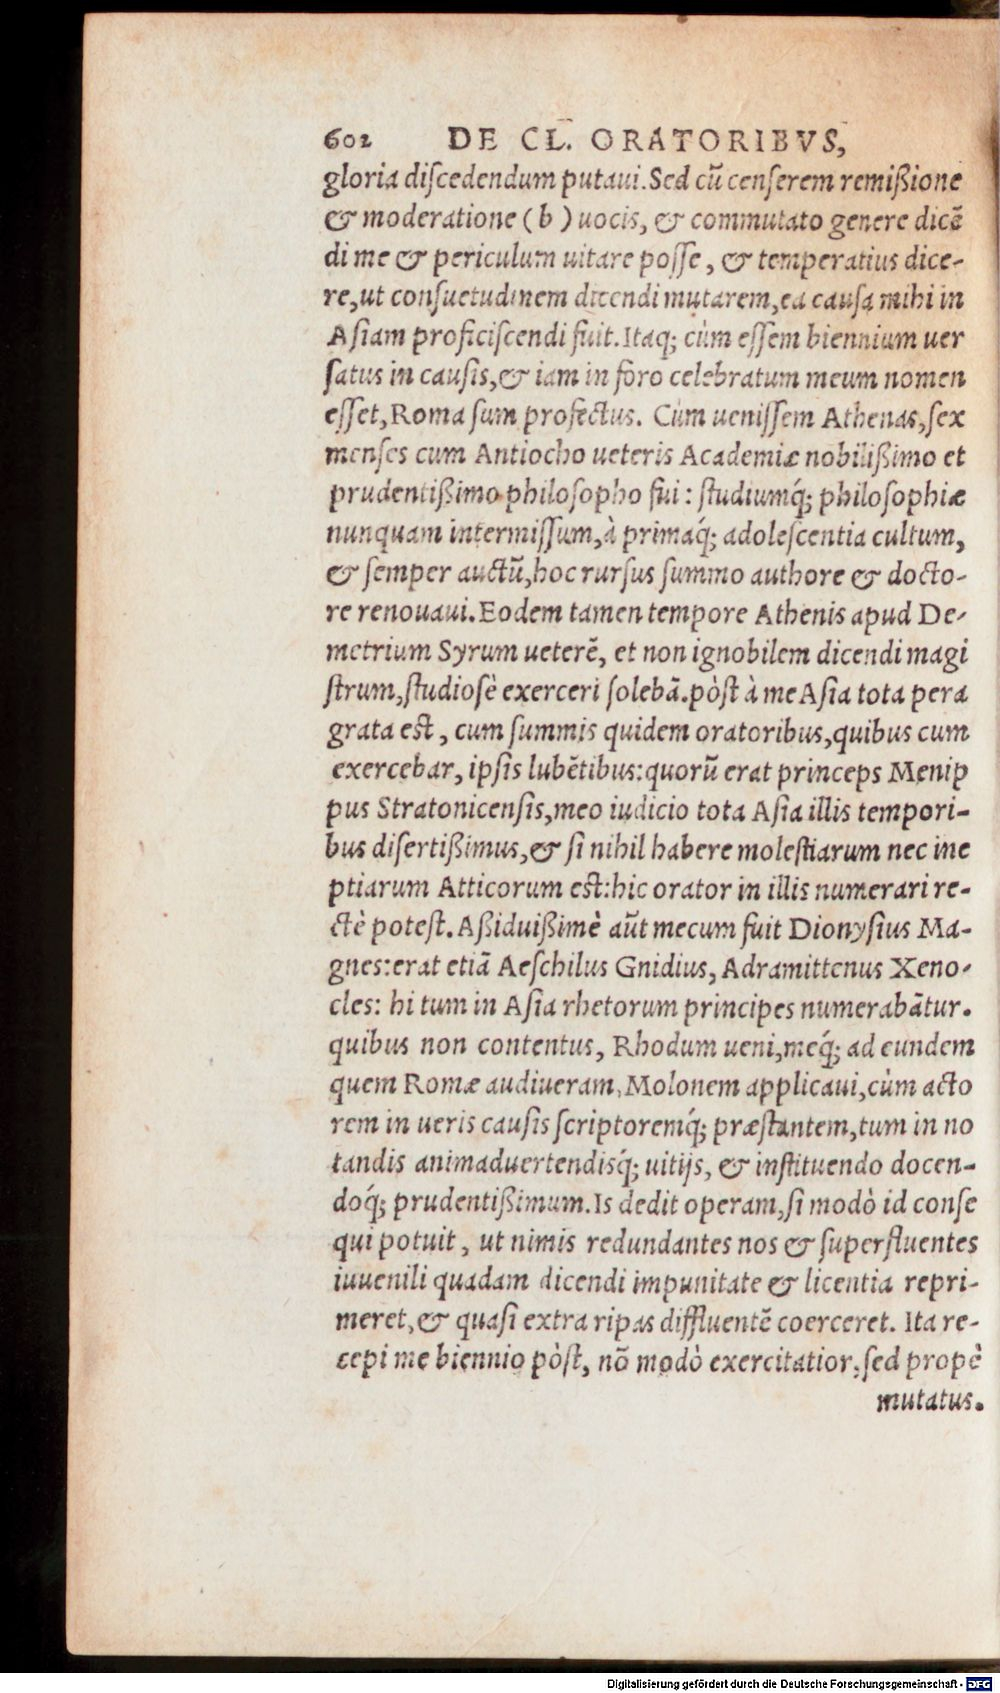 602 DE CL. ORATORIBVS,
gloria diſcedendum putaui. Sed cũ cenſerem remißione
& moderatione ( b ) uocis, & commutato genere dicẽ
di me & periculum uitare poſſe, & temperatius dice-
re, ut conſuetudinem dicendi mutarem, ea cauſa mihi in
Aſiam proficiſcendi fuit. Itaq; cùm eſſem biennium uer
ſatus in cauſis, & iam in foro celebratum meum nomen
eſſet, Roma ſum profectus. Cùm ueniſſem Athenas, ſex
menſes cum Antiocho ueteris Academiæ nobilißimo et
prudentißimo philoſopho fui: ſtudiumq́; philoſophiæ
nunquam intermiſſum, à primaq́; adoleſcentia cultum,
& ſemper auctũ, hoc rurſus ſummo authore & docto-
re renouaui. Eodem tamen tempore Athenis apud De-
metrium Syrum ueterẽ, et non ignobilem dicendi magi
ſtrum, ſtudioſè exerceri ſolebã. pòſt à me Aſia tota pera
grata eſt, cum ſummis quidem oratoribus, quibus cum
exercebar, ipſis lubẽtibus: quorũ erat princeps Menip
pus Stratonicenſis, meo iudicio tota Aſia illis tempori-
bus diſertißimus, & ſi nihil habere moleſtiarum nec ine
ptiarum Atticorum eſt: hic orator in illis numerari re-
ctè poteſt. Aßiduißimè aũt mecum fuit Dionyſius Ma-
gnes: erat etiã Aeſchilus Gnidius, Adramittenus Xeno-
cles: hi tum in Aſia rhetorum principes numerabãtur.
quibus non contentus, Rhodum ueni, meq́; ad eundem
quem Romæ audiueram, Molonem applicaui, cùm acto
rem in ueris cauſis ſcriptoremq́; præſtantem, tum in no
tandis animaduertendisq́; uitijs, & inſtituendo docen-
doq́; prudentißimum. Is dedit operam, ſi modò id conſe
qui potuit, ut nimis redundantes nos & ſuperfluentes
iuuenili quadam dicendi impunitate & licentia repri-
meret, & quaſi extra ripas diffluentẽ coerceret. Ita re-
cepi me biennio pòſt, nõ modò exercitatior, ſed propè
mutatus.
Digitalisierung gefördert durch die Deutsche Forschungsgemeinschaft - DFG